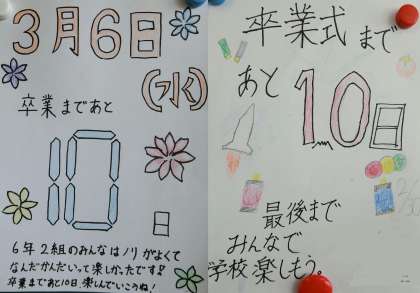 3月6日
(水)
卒業まであと
10
日
6年2組のみんなはノリがよくて
なんだかんだいって楽しかったです!!
卒業まであと10日、楽しんでいこうね!
卒業式まで
あと
10日
最後まで
みんなで
学校楽しもう。